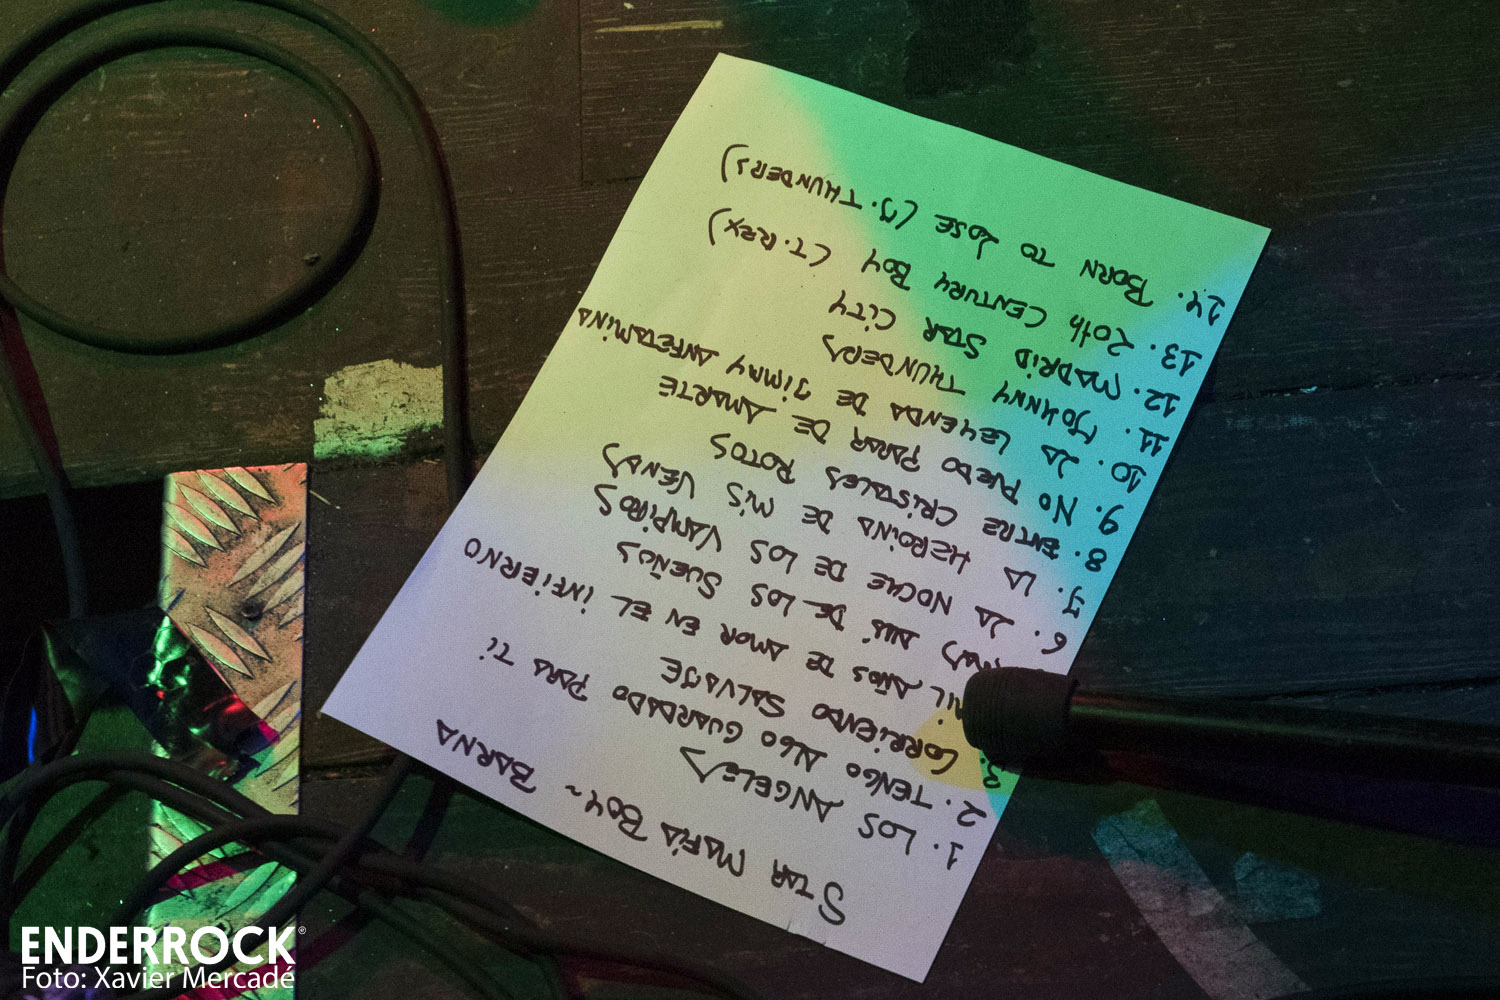 STAR MAFIA BOY ~ BARNA
1. LOS ANGELES
2. TENGO ALGO GUARDADO PARA TI
3. CORRIENDO SALVAJE
MIL AÑOS DE AMOR EN EL INFIERNO
MAS ALLÁ DE LOS SUEÑOS
6. LA NOCHE DE LOS VAMPIROS
7. LA HEROINA DE MIS VENAS
8. ENTRE CRISTALES ROTOS
9. NO PUEDO PARAR DE AMARTE
10. LA LEYENDA DE JIMMY ANFETAMINA
11. JOHNNY THUNDERS
12. MADRID STAR CITY
13. 20th CENTURY BOY (T. REX)
14. BORN TO LOSE (J. THUNDERS)
ENDERROCK®
Foto: Xavier Mercadé